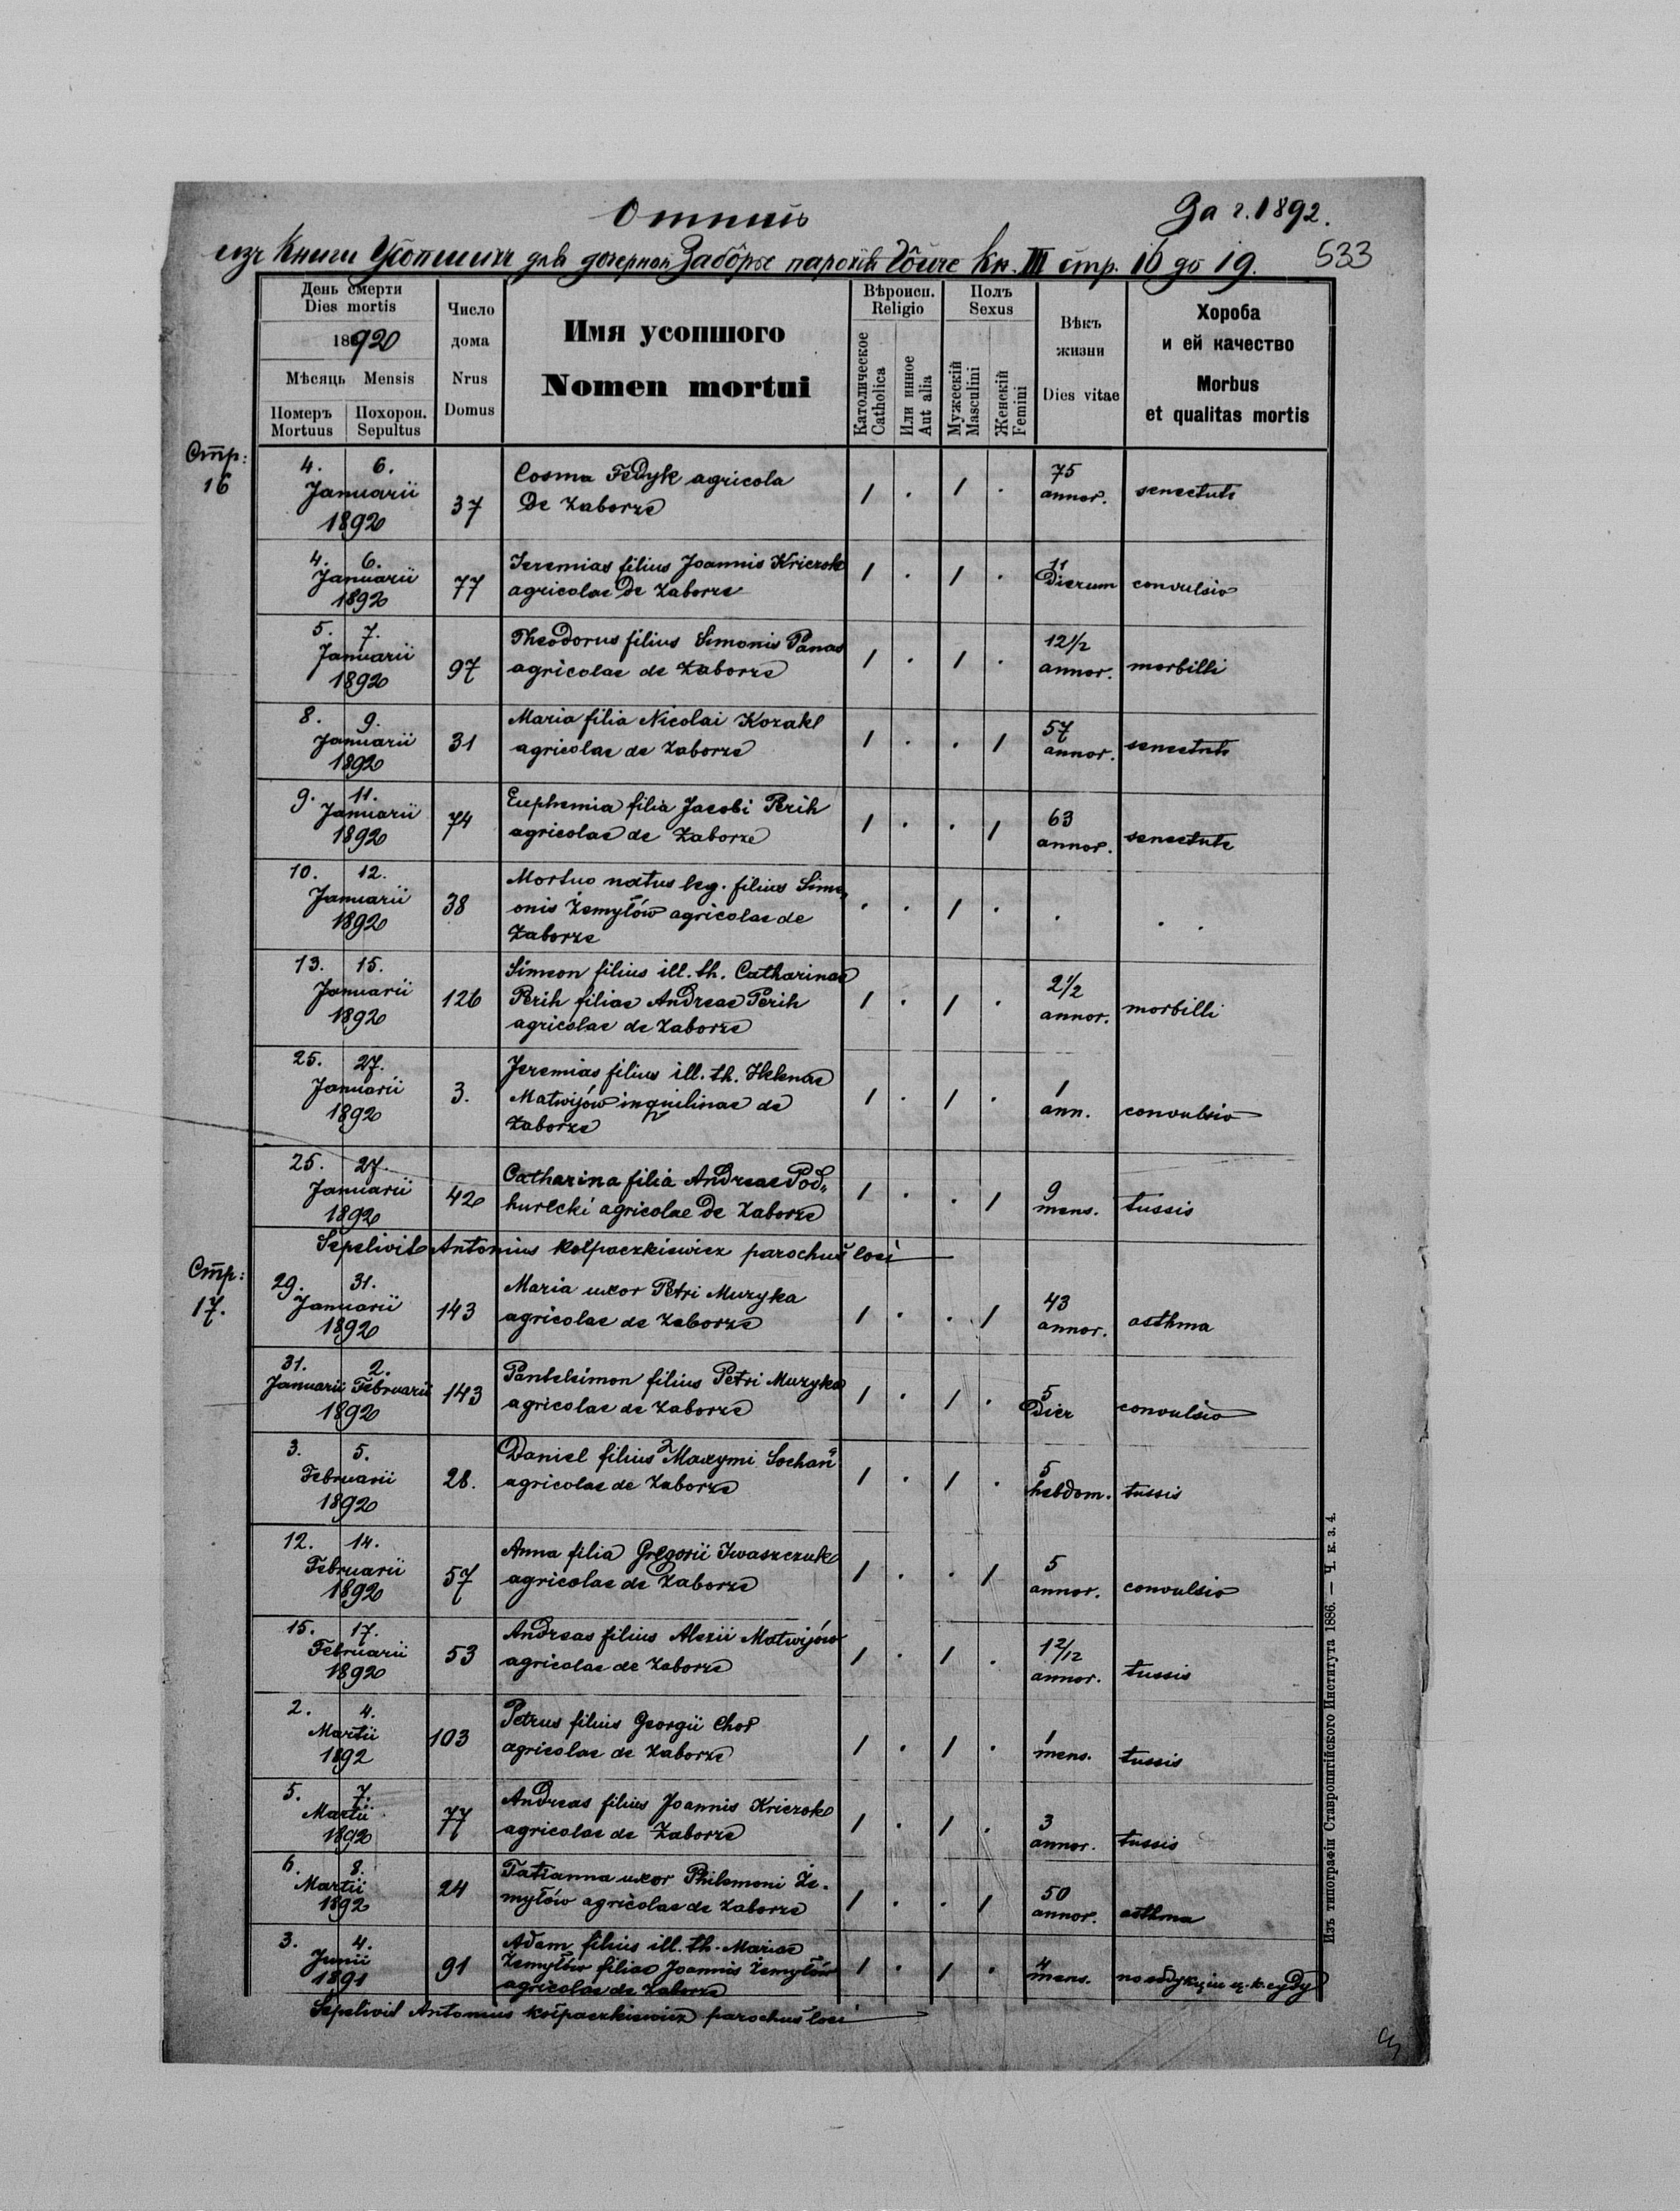 Отпись
За г. 1892.
изъ Книги Усопшихъ для дочерной Забôрье парохіи Кн. III стр. 16 до 19.
533
День смерти
Dies mortis
1892
Мѣсяць Mensis
Померъ Похорон.
Mortuus Sepultus
Число
дома
Nrus
Domus
Имя усопшого
Nomen mortui
Вѣроисп.
Religio
Католическое
Catholica
Или инное
Aut alia
Полъ
Sexus
Мужескій
Masculini
Женскій
Femini
Вѣкъ
жизни
Dies vitae
Хороба
и ей качество
Morbus
et qualitas mortis
Стр:
16
4. 6. Cosma Fedyk agricola 75
Januarii 37 de Zaborze 1 . 1 . annor. senectute
1892
4. 6. Jeremias filius Joannis Kriczok 11
Januarii 77 agricolae de Zaborze 1 . 1 . Dierum convulsio
1892
5. 7. Theodorus filius Simonis Panas 12 1/2
Januarii 97 agricolae de Zaborze 1 . 1 . annor. morbilli
1892
8. 9. Maria filia Nicolai Kozak 57
Januarii 31 agricolae de Zaborze 1 . . 1 annor. senectute
1892
9. 11. Euphemia filia Jacobi Perih 63
Januarii 74 agricolae de Zaborze 1 . . 1 annor. senectute
1892
10. 12. Mortuo natus leg. filius Sime„
Januarii 38 onis Żemyłów agricolae de . . 1 . . . .
1892 Zaborze
13. 15. Simeon filius ill. th. Catharinae 2 1/2
Januarii 126 Perih filiae Andreae Perih 1 . 1 . annor. morbilli
1892 agricolae de Zaborze
25. 27. Jeremias filius ill. th. Helenae 1
Januarii 3. Matwijów inquilinae de 1 . 1 . ann. convulsio
1892 Zaborze
25. 27. Catharina filia Andreae Pod„ 9
Januarii 42 hurecki agricolae de Zaborze 1 . . 1 mens. tussis
1892
Sepelivit Antonius Kołpaczkiewicz parochus loci
Стр:
17.
29. 31. Maria uxor Petri Muzyka 43
Januarii 143 agricolae de Zaborze 1 . . 1 annor. asthma
1892
31. 2. Panteleimon filius Petri Muzyka 5
Januarii Februarii 143 agricolae de Zaborze 1 . 1 . Dier convulsio
1892
3. 5. Daniel filius Maxymi Sochań 5
Februarii 28. agricolae de Zaborze 1 . 1 . hebdom. tussis
1892
12. 14. Anna filia Gregorii Iwaszczuk 5
Februarii 57 agricolae de Zaborze 1 . . 1 annor. convulsio
1892
15. 17. Andreas filius Alexii Matwijów 1 2/12
Februarii 53 agricolae de Zaborze 1 . 1 . annor. tussis
1892
2. 4. Petrus filius Georgii 1
Martii 103 agricolae de Zaborze 1 . 1 . mens. tussis
1892
5. 7. Andreas filius Joannis Kriczok 3
Martii 77 agricolae de Zaborze 1 . 1 . annor. tussis
1892
6. 8. Tatianna uxor Philemoni Że- 50
Martii 24 myłów agricolae de Zaborze 1 . . 1 annor. asthma
1892
3. 4. Adam filius ill. th. Mariae 4
Junii 91 Żemyłów filiae Joannis Żemyłów 1 . 1 . mens. по обдукціи ц. к. суду
1891 agricolae de Zaborze
Sepelivit Antonius Kołpaczkiewicz parochus loci
Изъ типографіи Ставропигійского Института 1886. — Ч. к. з. 4.